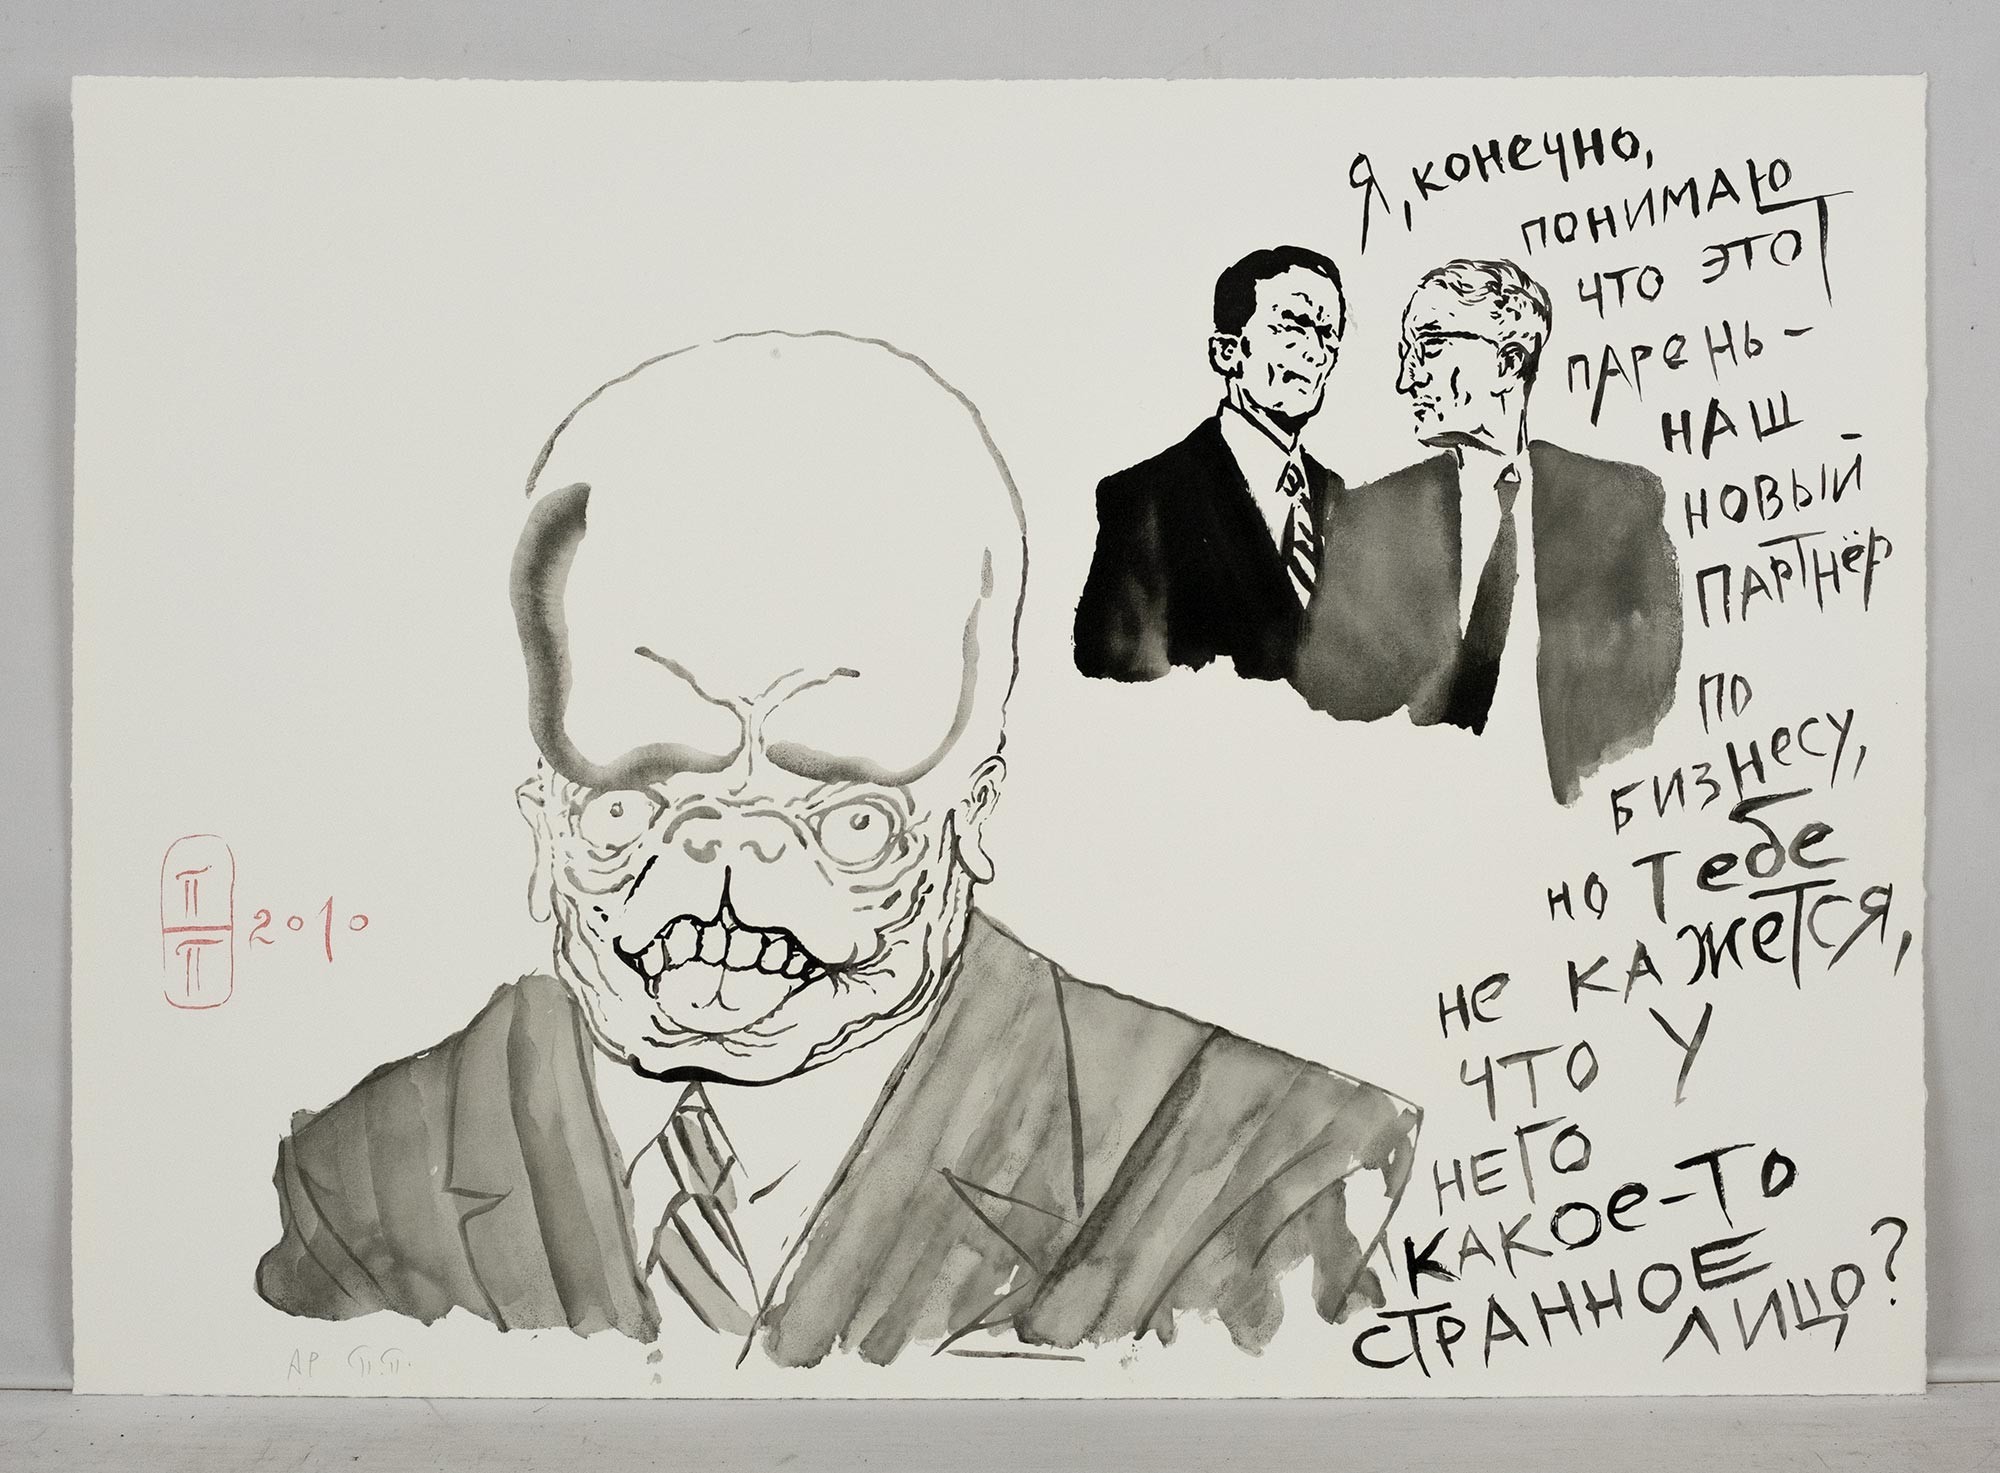 Я, конечно,
понимаю
что этот
парень-
наш
новый
партнёр
по
бизнесу,
но тебе
не кажется,
что у
него
какое-то
странное
лицо?
П
П
2010
AP П.П.